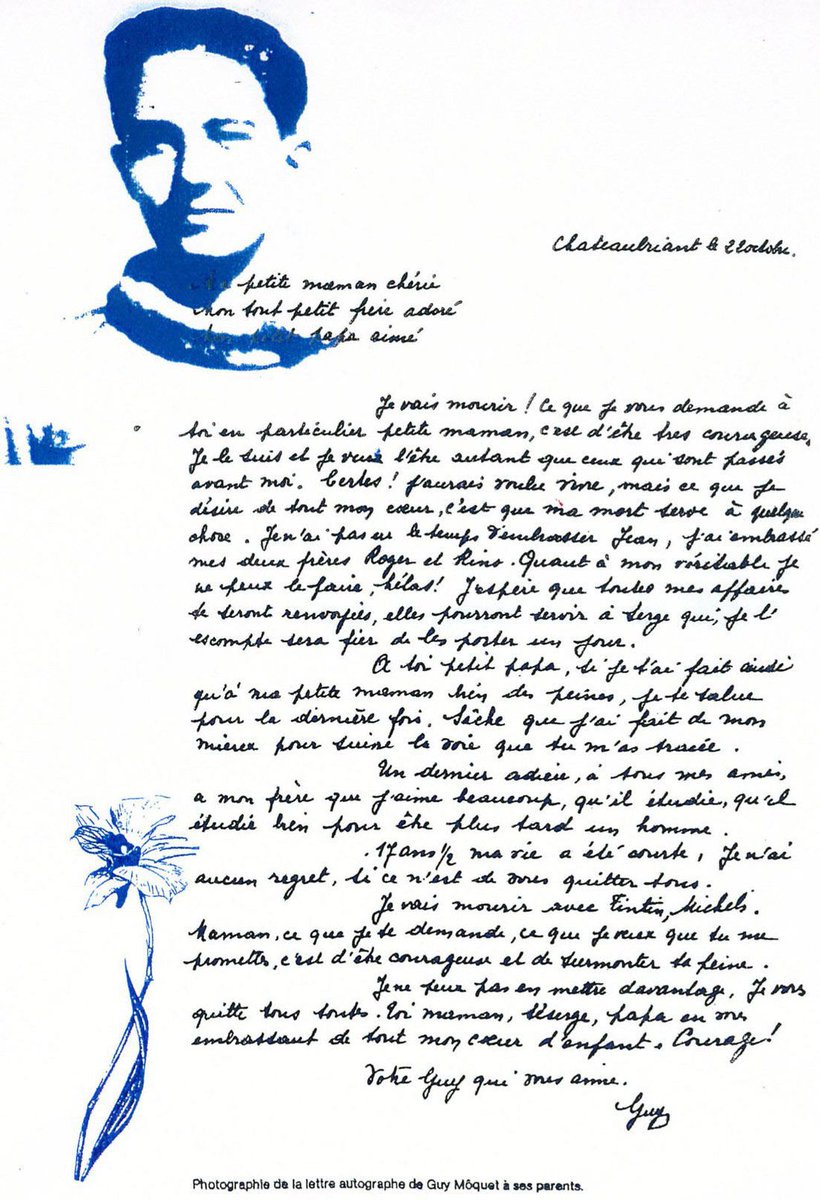 Chateaubriant le 22 octobre.
Ma petite maman chérie
Mon tout petit frère adoré
Mon petit papa aimé
Je vais mourir ! Ce que je vous demande à
toi en particulier petite maman, c'est d'être très courageuse.
Je le suis et je veux l'être autant que ceux qui sont passés
avant moi. Certes ! j'aurais voulu vivre, mais ce que je
désire de tout mon cœur, c'est que ma mort serve à quelque
chose. Je n'ai pas eu le temps d'embrasser Jean, j'ai embrassé
mes deux frères Roger et Rino. Quant à mon véritable je
ne peux le faire, hélas ! J'espère que toutes mes affaires
te seront renvoyées, elles pourront servir à Serge qui, je l'
escompte sera fier de les porter un jour.
A toi petit papa, si je t'ai fait ainsi
qu'à ma petite maman bien des peines, je te salue
pour la dernière fois. Sâche que j'ai fait de mon
mieux pour suivre la voie que tu m'as tracée.
Un dernier adieu, à tous mes amis,
a mon frère que j'aime beaucoup, qu'il étudie, qu'il
étudie bien pour être plus tard un homme.
.17 ans 1/2 ma vie a été courte, je n'ai
aucun regret, si ce n'est de vous quitter tous.
Je vais mourir avec Tintin, Michels.
Maman, ce que je te demande, ce que je veux que tu me
promettes, c'est d'être courageuse et de surmonter ta peine.
Je ne peux pas en mettre davantage. Je vous
quitte tous toutes. Toi maman, Séserge, papa en vous
embrassant de tout mon cœur d'enfant. Courage !
Votre Guy qui vous aime.
Guy
Photographie de la lettre autographe de Guy Môquet à ses parents.